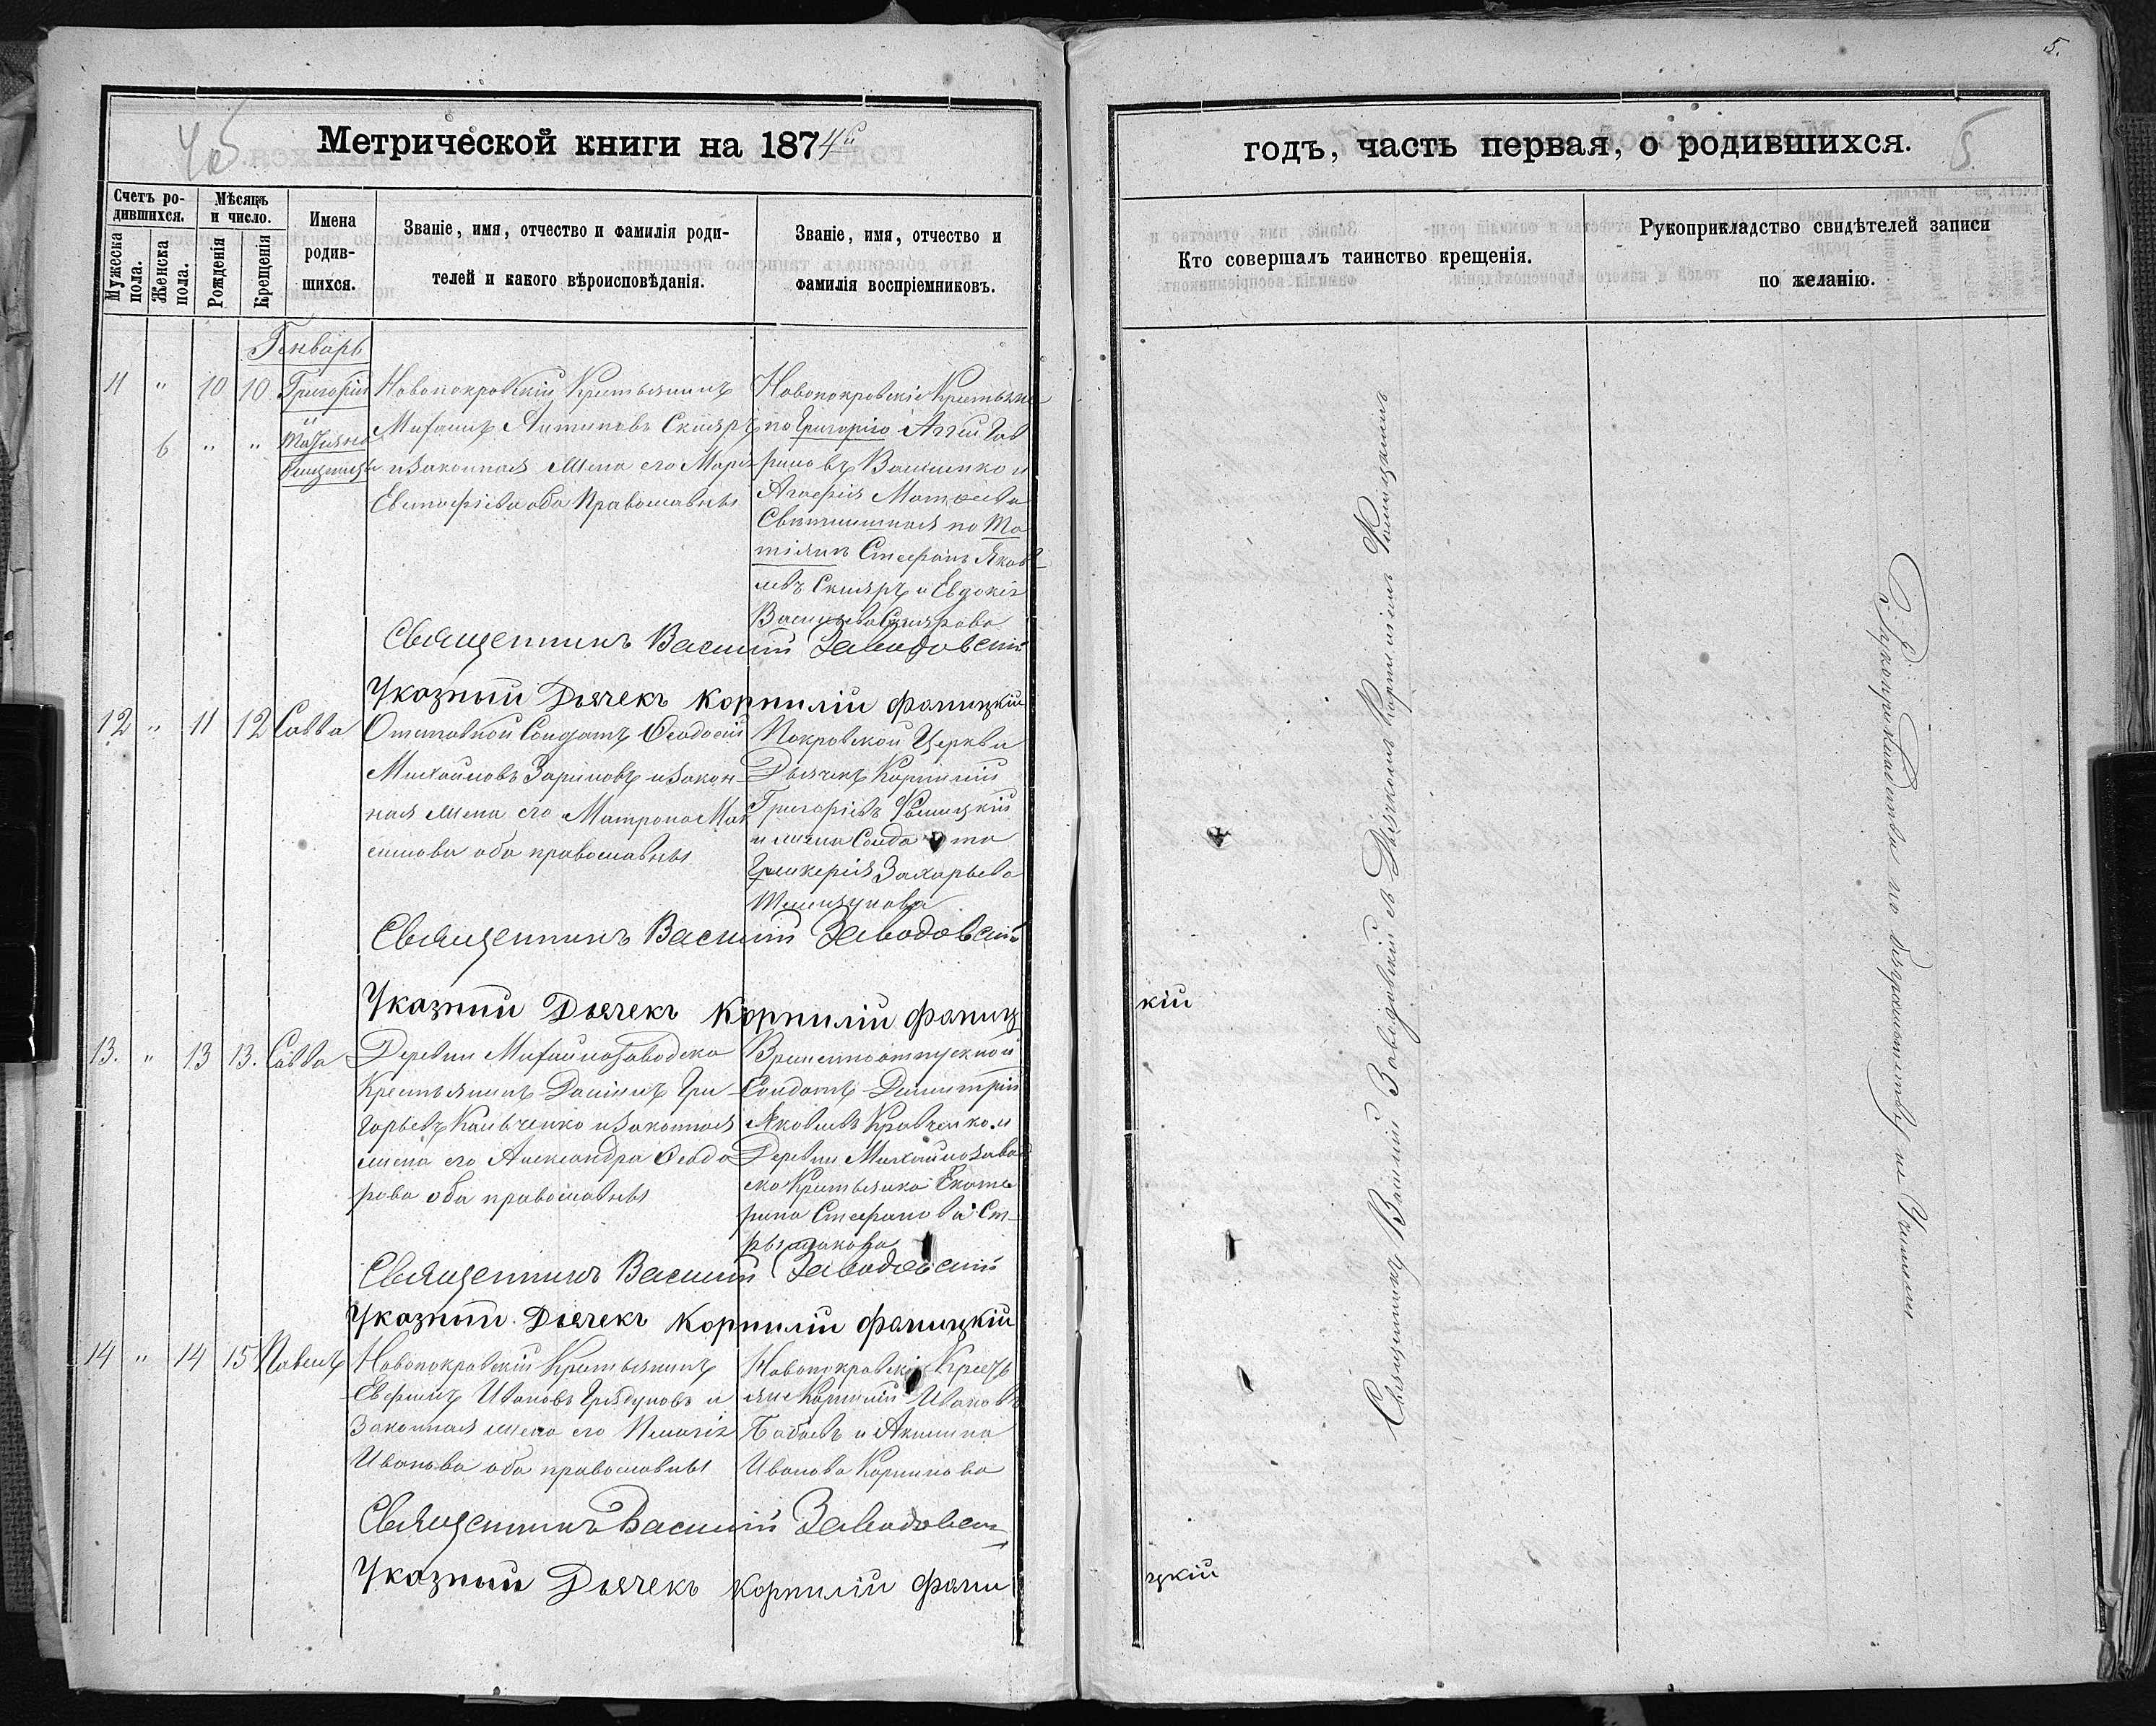 5.
Метрической книги на 1874й
годъ, часть первая, о родившихся.
5
Счетъ ро-
дившихся.
Мужеска пола.
Женска пола.
Мѣсяцъ
и число.
Рожденія
Крещенія
Имена
родив-
шихся.
Званіе, имя, отчество и фамилія роди-
телей и какого вѣроисповѣданія.
Званіе, имя, отчество и
фамилія воспріемниковъ.
Кто совершалъ таинство крещенія.
Рукоприкладство свидѣтелей записи
по желанію.
Генварь
11 " 10 10 Григорій
и
6 " " Татіяна
близнецы
Новопокровскій Крестьянинъ
Антиповъ Скляръ
и законная жена его Марія
Евстафіева оба Православны
Новопокровскіе Крестьяне
по Григорію
Ващенко и
Агафія Матѳеева
по Та
тіянѣ Стефанъ Яков
левъ Скляръ и Евдокія
Васильева Склярова
Священникъ Василій Заводовскій
Указный Дьячекъ Корнилій Фаницкій
12 " 11 12 Савва
Отставной Солдатъ Ѳеодосій
Михайловъ Зариповъ и закон-
ная жена его Матрона Мак
симова оба православны
Покровской Церкви
Дьячекъ Корнилій
Григорьевъ Фаницкій
и жена Солдата
Гликерія Захарьева
Священникъ Василій Заводовскій
Указный Дьячекъ Корнилій Фаниц
кій
13. " 13 13. Савва
Деревни Михайлозаводска
Крестьянинъ Даніилъ Гри-
горьевъ Кальченко и законная
жена его Александра Ѳеодо
рова оба православны
Временноотпускной
Солдатъ Димитрій
Яковлевъ Кравченко и
Деревни Михайлозавод
ска Крестьянка Екате
рина Стефанова Ст-
Священникъ Василій Заводовскій
Указный Дьячекъ Корнилій Фаницкій
14 " 14 15 Павелъ
Новопокровскій Крестьянинъ
Евфимъ Ивановъ и
Законная жена его Пелагія
Иванова оба православны
Новопокровскіе Кресть
яне Корнилій Ивановъ
Бабаевъ и Акилина
Иванова Корнилова
Священникъ Василій Заводовскі
Указный Дьячекъ Корнилій Фани
цкій
Священникъ Василій Заводовскій съ Дьячкомъ Корниліемъ Фаницкимъ
Рукоприкладства по безграмотству не Учинили